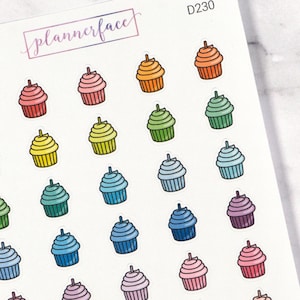 D230
plannerface